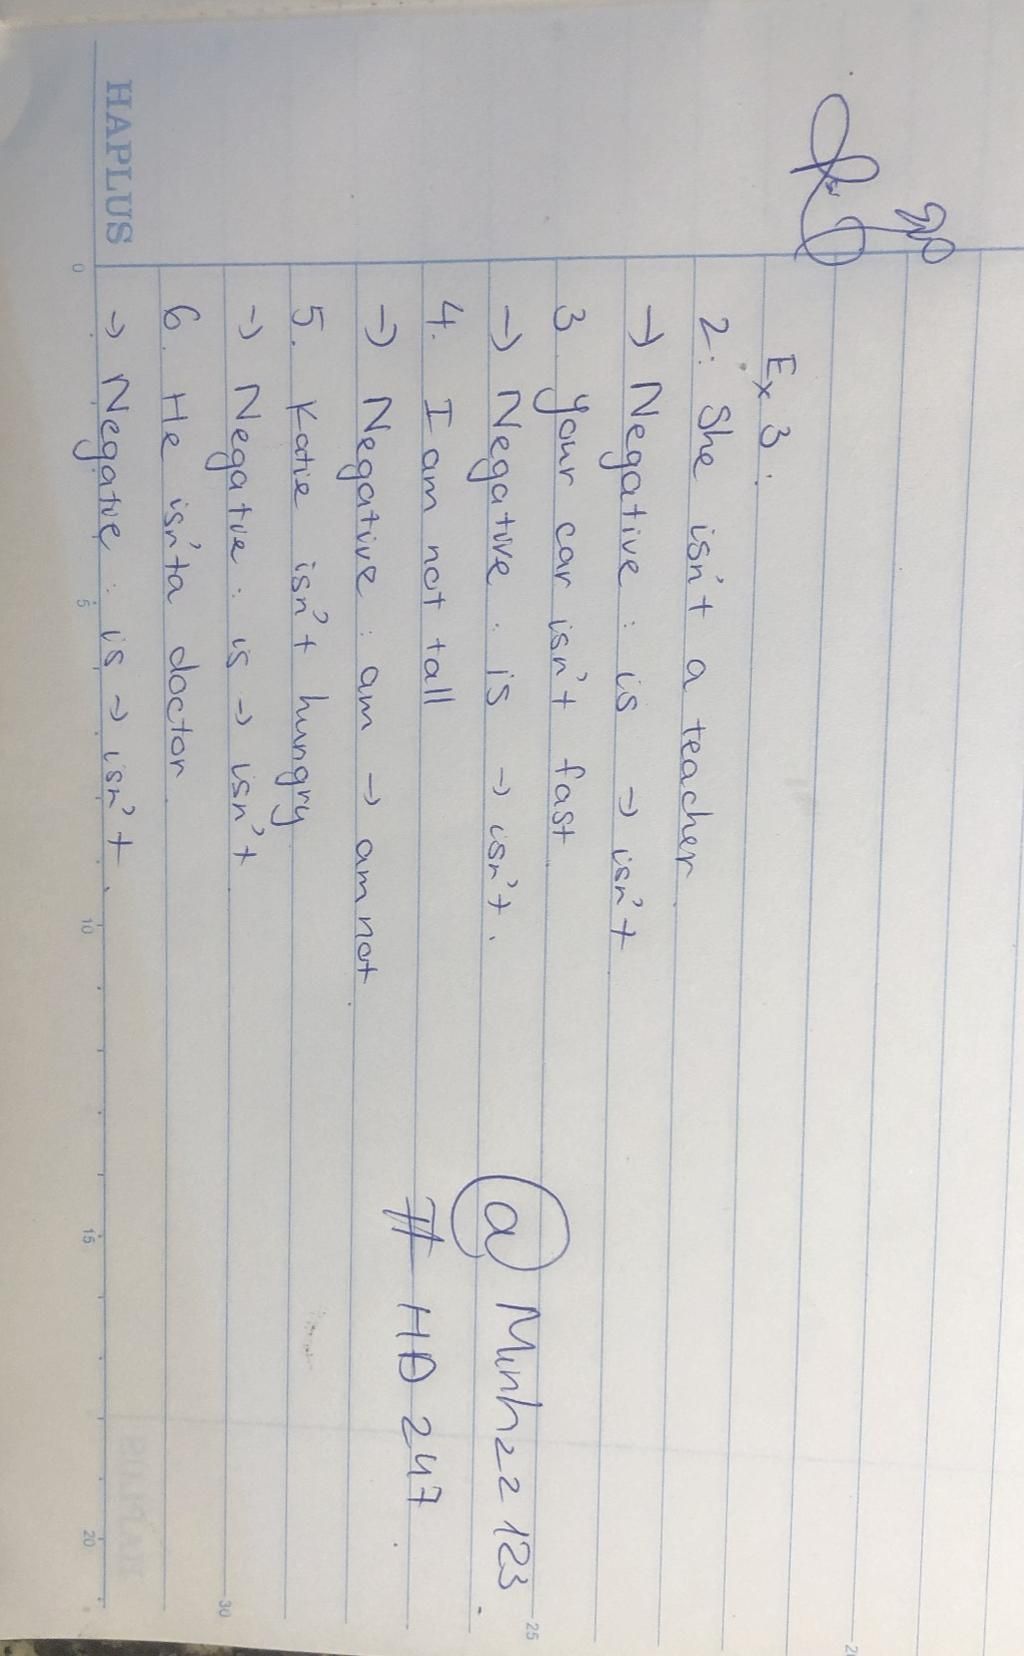 Ex 3.
2. She isn't a teacher
→ Negative : is → isn't
3 your car isn't fast
→ Negative : is → isn't.
@ Minhzz 123
4. I am not tall
# HĐ 247
→ Negative : am → am not
5. Katie isn't hungry
→ Negative : is → isn't
6. He isn'ta doctor
→ Negative : is → isn't.
HAPLUS
0 5 10 15 20
25
30